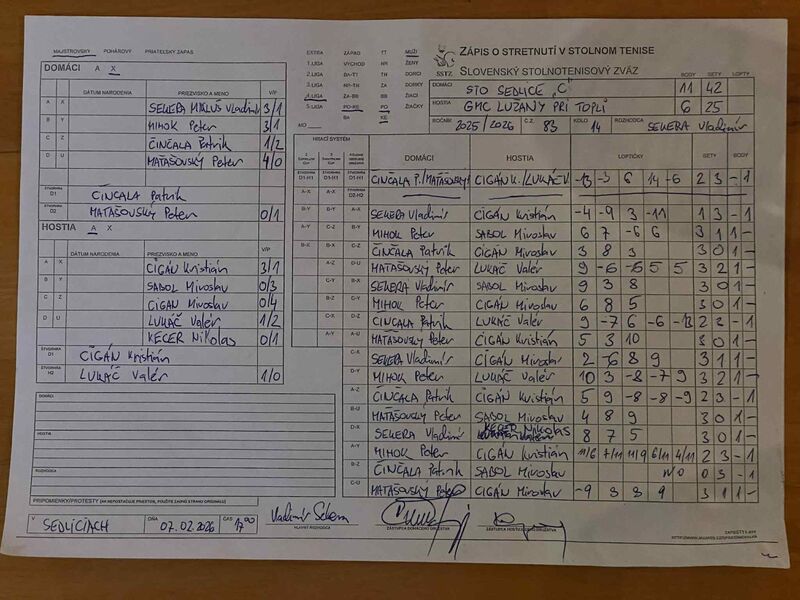 MAJSTROVSKÝ POHÁROVÝ PRIATEĽSKÝ ZÁPAS
DOMÁCI A X
DÁTUM NARODENIA PRIEZVISKO A MENO V/P
A X SEKERA MIKLUŠ Vladimír 3/1
B Y MIHOK Peter 3/1
C Z ČINČALA Patrik 1/2
D U MATAŠOVSKÝ Peter 4/0
ŠTVORHRA D1 ČINČALA Patrik
ŠTVORHRA D2 MATAŠOVSKÝ Peter 0/1
HOSTIA A X
DÁTUM NARODENIA PRIEZVISKO A MENO V/P
A X CIGÁN Kristián 3/1
B Y SABOL Miroslav 0/3
C Z CIGÁN Miroslav 0/4
D U LUKÁČ Valér 1/2
KECER Nikolas 0/1
ŠTVORHRA D1 CIGÁN Kristián
ŠTVORHRA H2 LUKÁČ Valér 1/0
DOMÁCI
HOSTIA
ROZHODCA
PRIPOMIENKY/PROTESTY (AK NEPOSTAČUJE PRIESTOR, POUŽITE ZADNÚ STRANU ORIGINÁLU)
V SEDLICIACH DŇA 07.02.2026 ČAS 17:00
HLAVNÝ ROZHODCA
ZÁSTUPCA DOMÁCEHO DRUŽSTVA
ZÁSTUPCA HOSŤUJÚCEHO DRUŽSTVA
EXTRA ZÁPAD TT MUŽI
1.LIGA VÝCHOD NR ŽENY
2.LIGA BA-TT TN DORCI
3.LIGA NR-TN ZA DORKY
4.LIGA ZA-BB BB ŽIACI
5.LIGA PO-KE PO ŽIAČKY
BA KE
MO
ZÁPIS O STRETNUTÍ V STOLNOM TENISE
SSTZ SLOVENSKÝ STOLNOTENISOVÝ ZVÄZ
BODY SETY LOPTY
DOMÁCI STO SEDLICE "C" 11 42
HOSTIA GMC LUŽANY PRI TOPLI 6 25
ROČNÍK 2025/2026 Č.Z. 83 KOLO 14 ROZHODCA SEKERA Vladimír
HRACÍ SYSTÉM
DOMÁCI HOSTIA LOPTIČKY SETY BODY
D1-H1 D1-H1 D1-H1 ČINČALA P./MATAŠOVSKÝ CIGÁN K./LUKÁČ V. -13 -3 6 14 -6 2 3 - 1
A-X A-X D2-H2
B-Y A-Y SEKERA Vladimír CIGÁN Kristián -4 -9 3 -11 1 3 - 1
MIHOK Peter SABOL Miroslav 6 7 -6 6 3 1 1 -
ČINČALA Patrik CIGÁN Miroslav 3 8 3 3 0 1 -
MATAŠOVSKÝ Peter LUKÁČ Valér 9 -6 -6 5 5 3 2 1 -
SEKERA Vladimír SABOL Miroslav 9 3 8 3 0 1 -
MIHOK Peter CIGÁN Miroslav 6 8 5 3 0 1 -
ČINČALA Patrik LUKÁČ Valér 9 -7 6 -6 -13 2 3 - 1
MATAŠOVSKÝ Peter CIGÁN Kristián 5 3 10 3 0 1 -
C-X SEKERA Vladimír CIGÁN Miroslav 2 -6 8 9 3 1 1 -
D-Y MIHOK Peter LUKÁČ Valér 10 3 -8 -7 9 3 2 1 -
A-Z ČINČALA Patrik CIGÁN Kristián 5 9 -8 -8 -9 2 3 - 1
B-U MATAŠOVSKÝ Peter SABOL Miroslav 4 8 9 3 0 1 -
D-X SEKERA Vladimír KECER NIKOLAS 8 7 5 3 0 1 -
A-Y MIHOK Peter CIGÁN Kristián 11/6 7/11 11/9 6/11 4/11 2 3 - 1
B-Z ČINČALA Patrik SABOL Miroslav W O 0 3 - 1
C-U MATAŠOVSKÝ Peter CIGÁN Miroslav -9 3 8 9 3 1 1 -